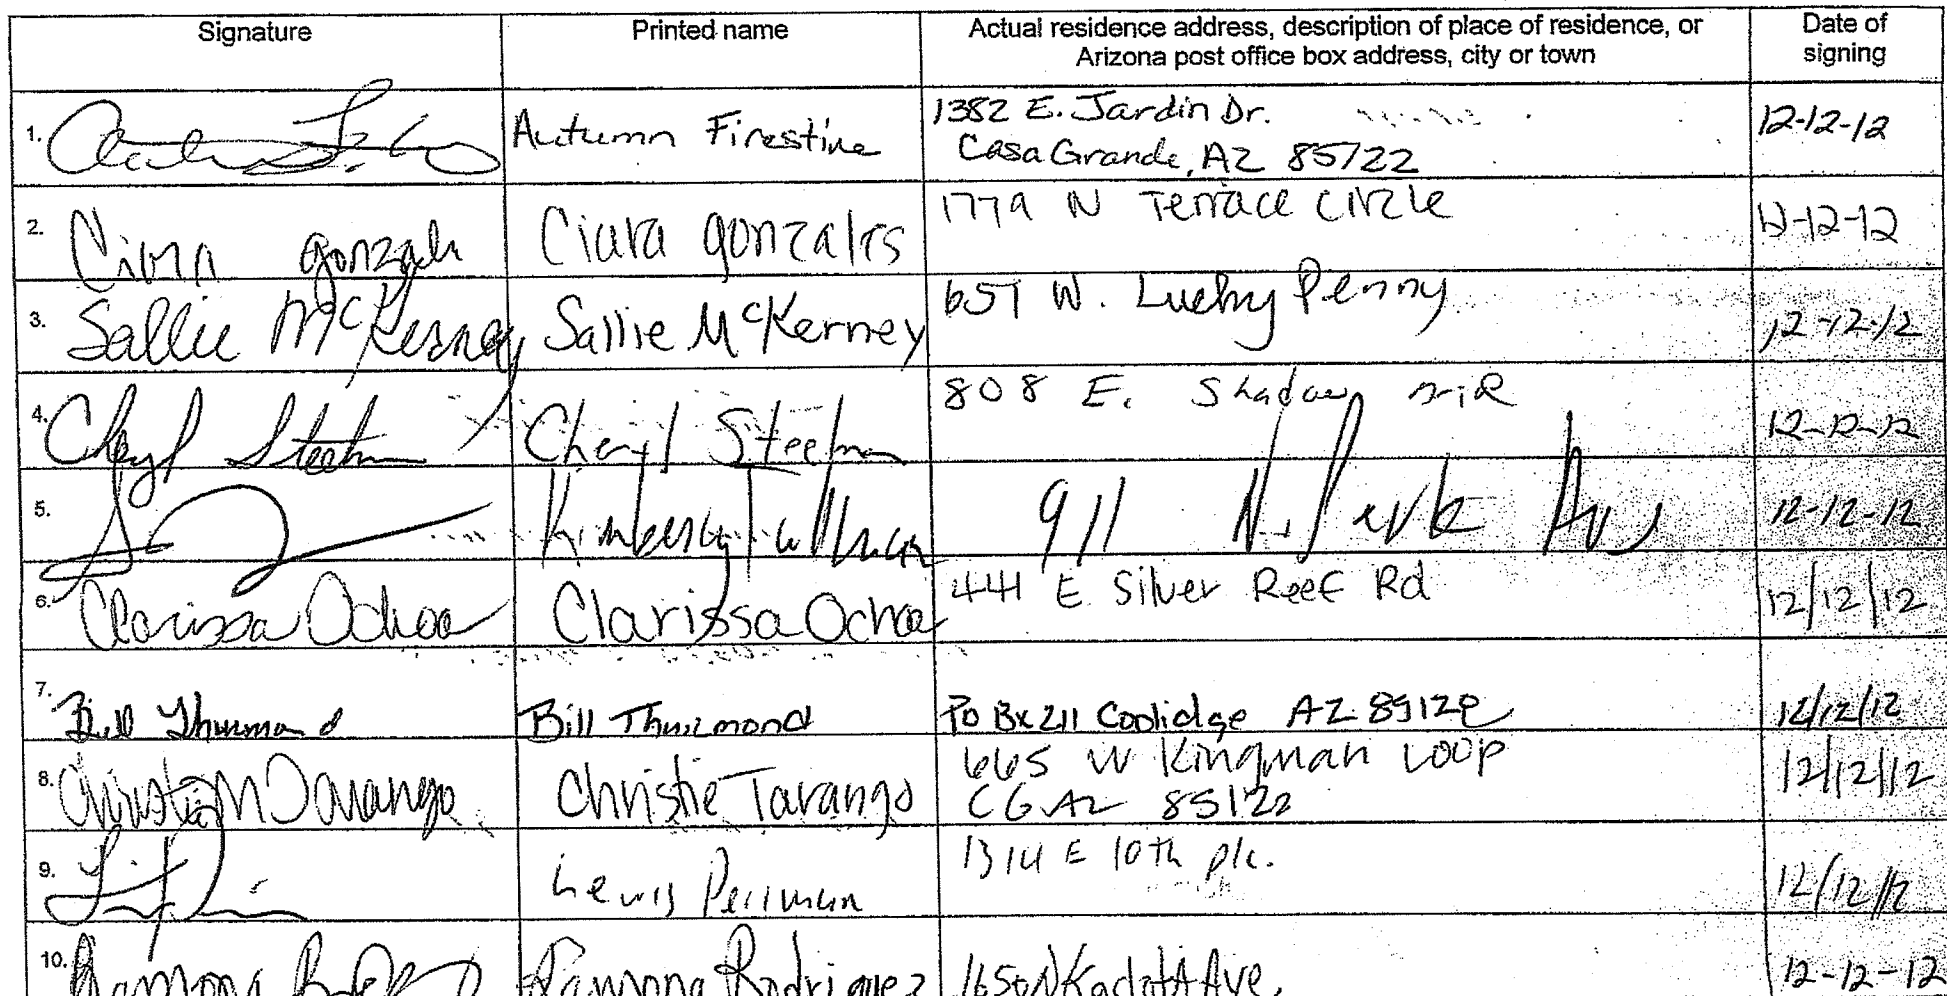 Signature Printed name Actual residence address, description of place of residence, or Arizona post office box address, city or town Date of signing
1. Autumn Firestine 1382 E. Jardin Dr. 12-12-12
Casa Grande, AZ 85122
2. Ciara gonzales Ciara gonzales 1779 N Terrace Circle 12-12-12
3. Sallie McKerney Sallie McKerney 657 W. Lucky Penny 12-12-12
4. Cheryl Steelman Cheryl Steelman 808 E. Shadow 12-12-12
5. Kimberly 911 N. Park Ave 12-12-12
6. Clarissa Ochoa Clarissa Ochoa 441 E Silver Reef Rd 12/12/12
7. Bill Thurmond Bill Thurmond Po Bx 211 Coolidge AZ 85128 12/12/12
8. Christie Tarango Christie Tarango 665 W Kingman Loop 12/12/12
CG AZ 85122
9. Lewis Perlman 1314 E 10th plc. 12/12/12
10. Ramona Ramona Rodriguez 1650 N Kadota Ave. 12-12-12